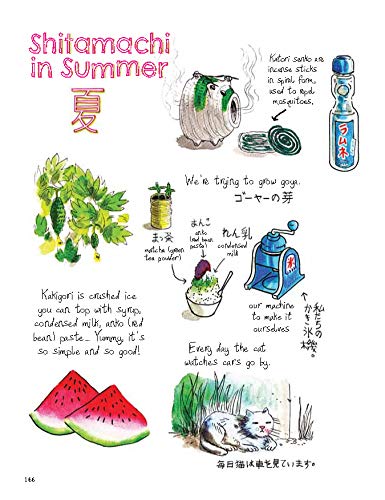 Shitamachi
in Summer
夏
Katori senko are
incense sticks
in spiral form,
used to repel
mosquitoes.
ラムネ
We're trying to grow goya.
ゴーヤーの芽
まっ茶
matcha (green
tea powder)
あんこ
anko
(red bean
paste)
れん乳
condensed
milk
氷
our machine
to make it
ourselves
私たちの
かき氷機。
Kakigori is crushed ice
you can top with syrup,
condensed milk, anko (red
bean) paste... Yummy, it's
so simple and so good!
Every day the cat
watches cars go by.
毎日猫は車を見ています。
166